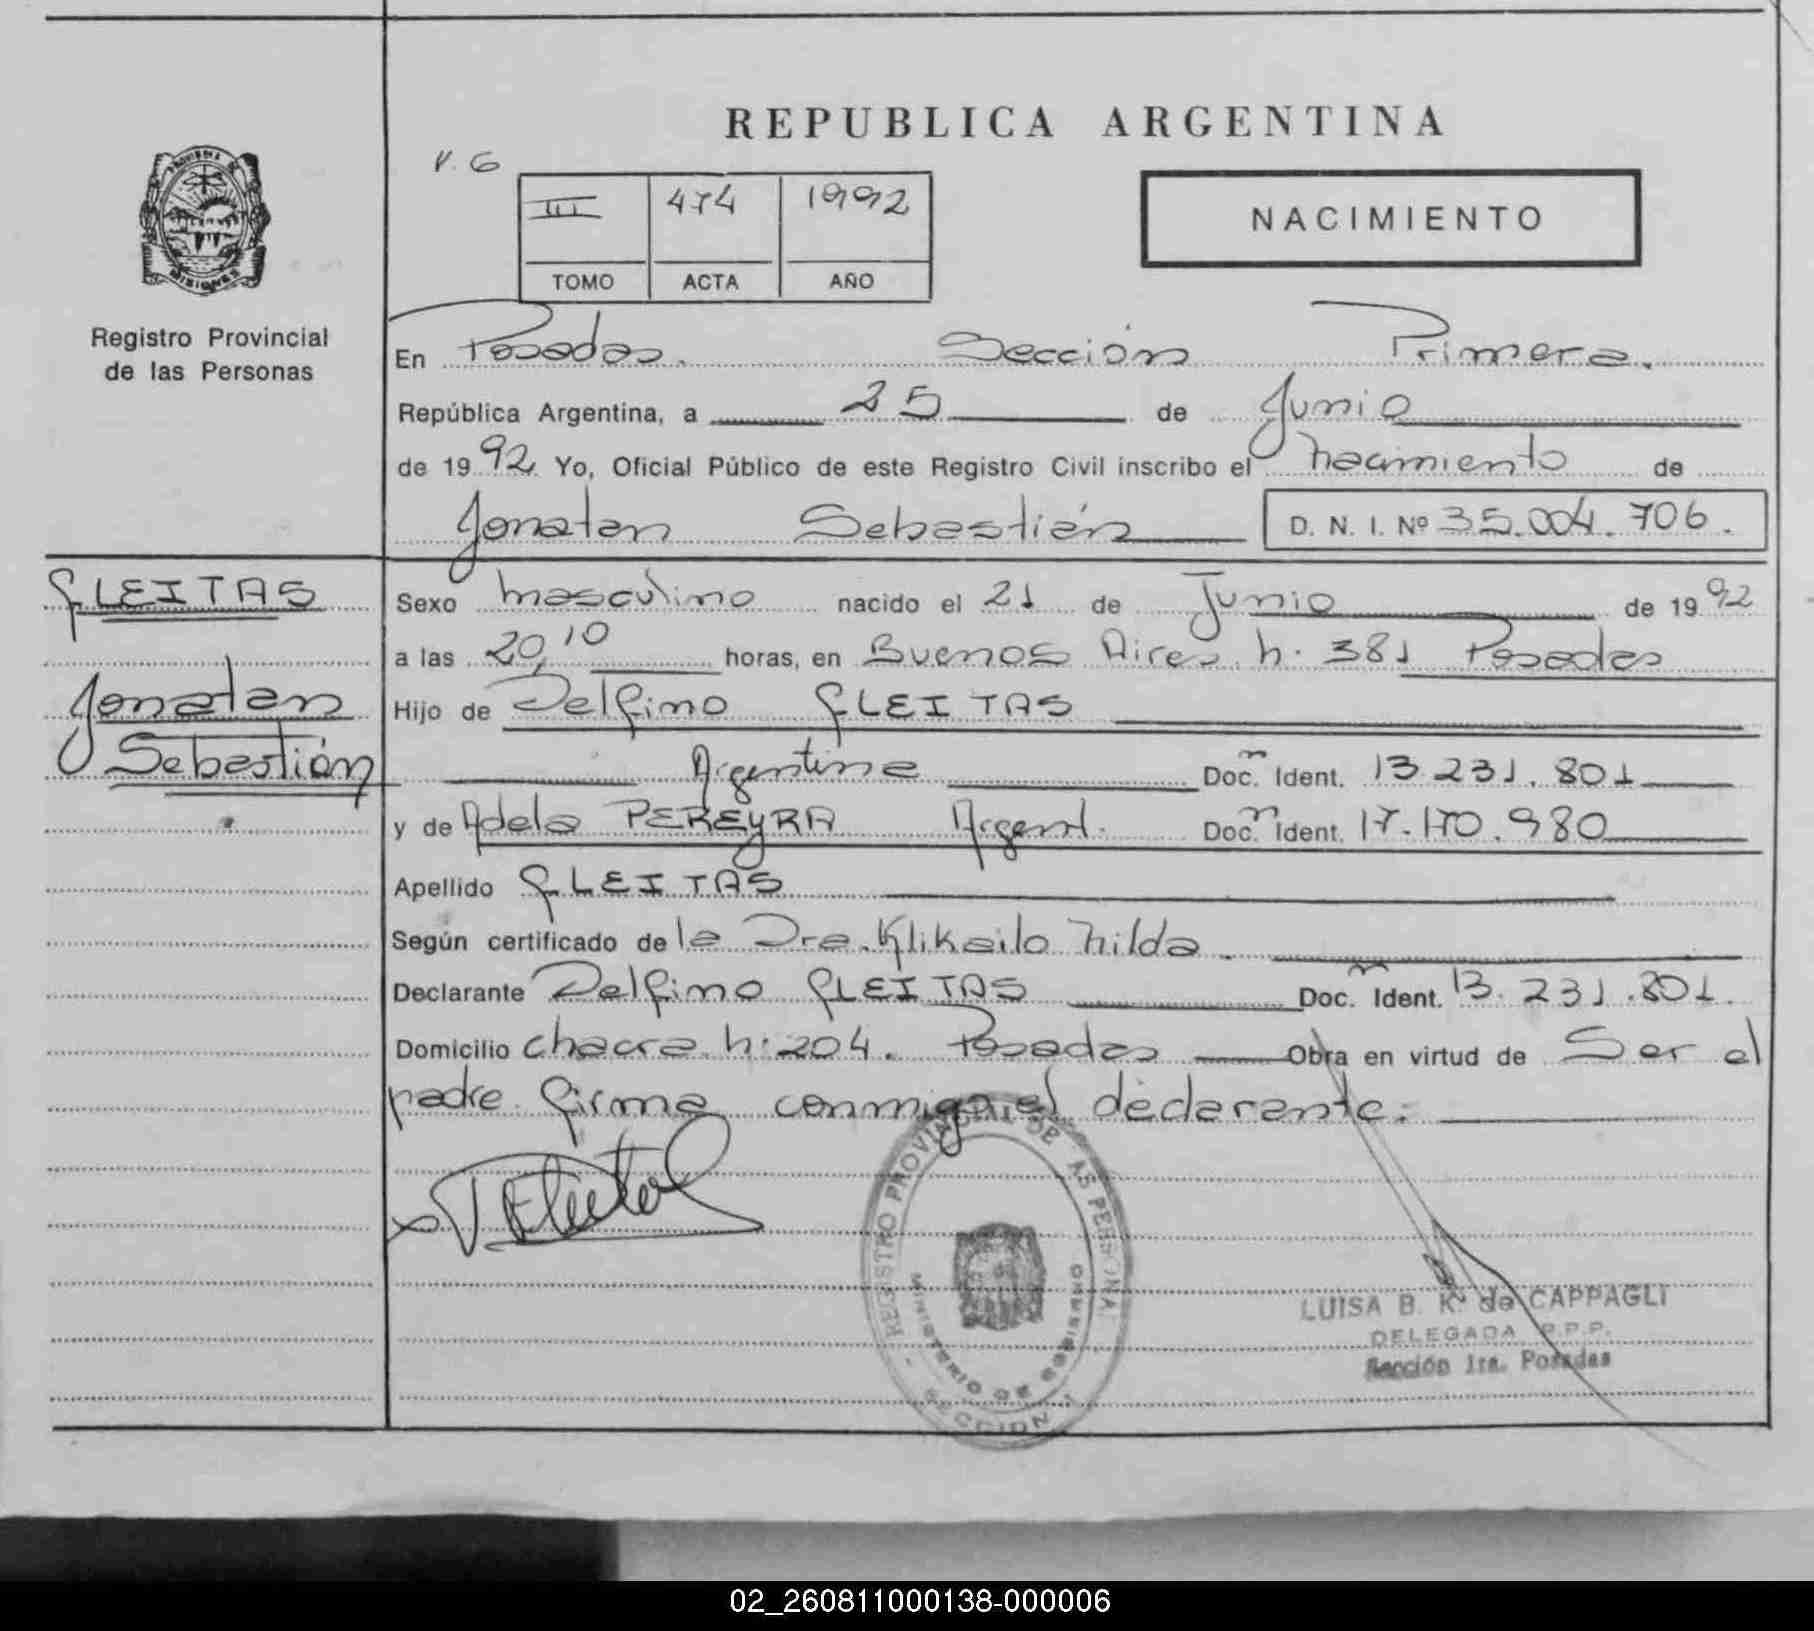 REPUBLICA ARGENTINA
V. G
III 474 1992
TOMO ACTA AÑO
NACIMIENTO
PROVINCIA DE MISIONES
Registro Provincial
de las Personas
En Posadas. Sección Primera.
República Argentina, a 25 de Junio
de 1992 Yo, Oficial Público de este Registro Civil inscribo el nacimiento de
Jonatan Sebastián D. N. I. Nº 35.004.706.
GLEITAS
Jonatan
Sebastián
Sexo masculino nacido el 21 de Junio de 1992
a las 20,10 horas, en Buenos Aires n. 381 Posadas
Hijo de Delfino GLEITAS
Argentina Doc. Ident. 13.231.801
y de Adela PEREYRA Argent. Doc. Ident. 17.170.980
Apellido GLEITAS
Según certificado de la Dra. Klikailo Nilda.
Declarante Delfino GLEITAS Doc. Ident. 13.231.801.
Domicilio chacra n: 204. Posadas Obra en virtud de Ser el
padre firma conmigo el declarante.
REGISTRO PROVINCIAL DE LAS PERSONAS
MINISTERIO DE GOBIERNO
SECCION 1
LUISA B. K. de CAPPAGLI
DELEGADA R.P.P.
Sección 1ra. Posadas
02_260811000138-000006